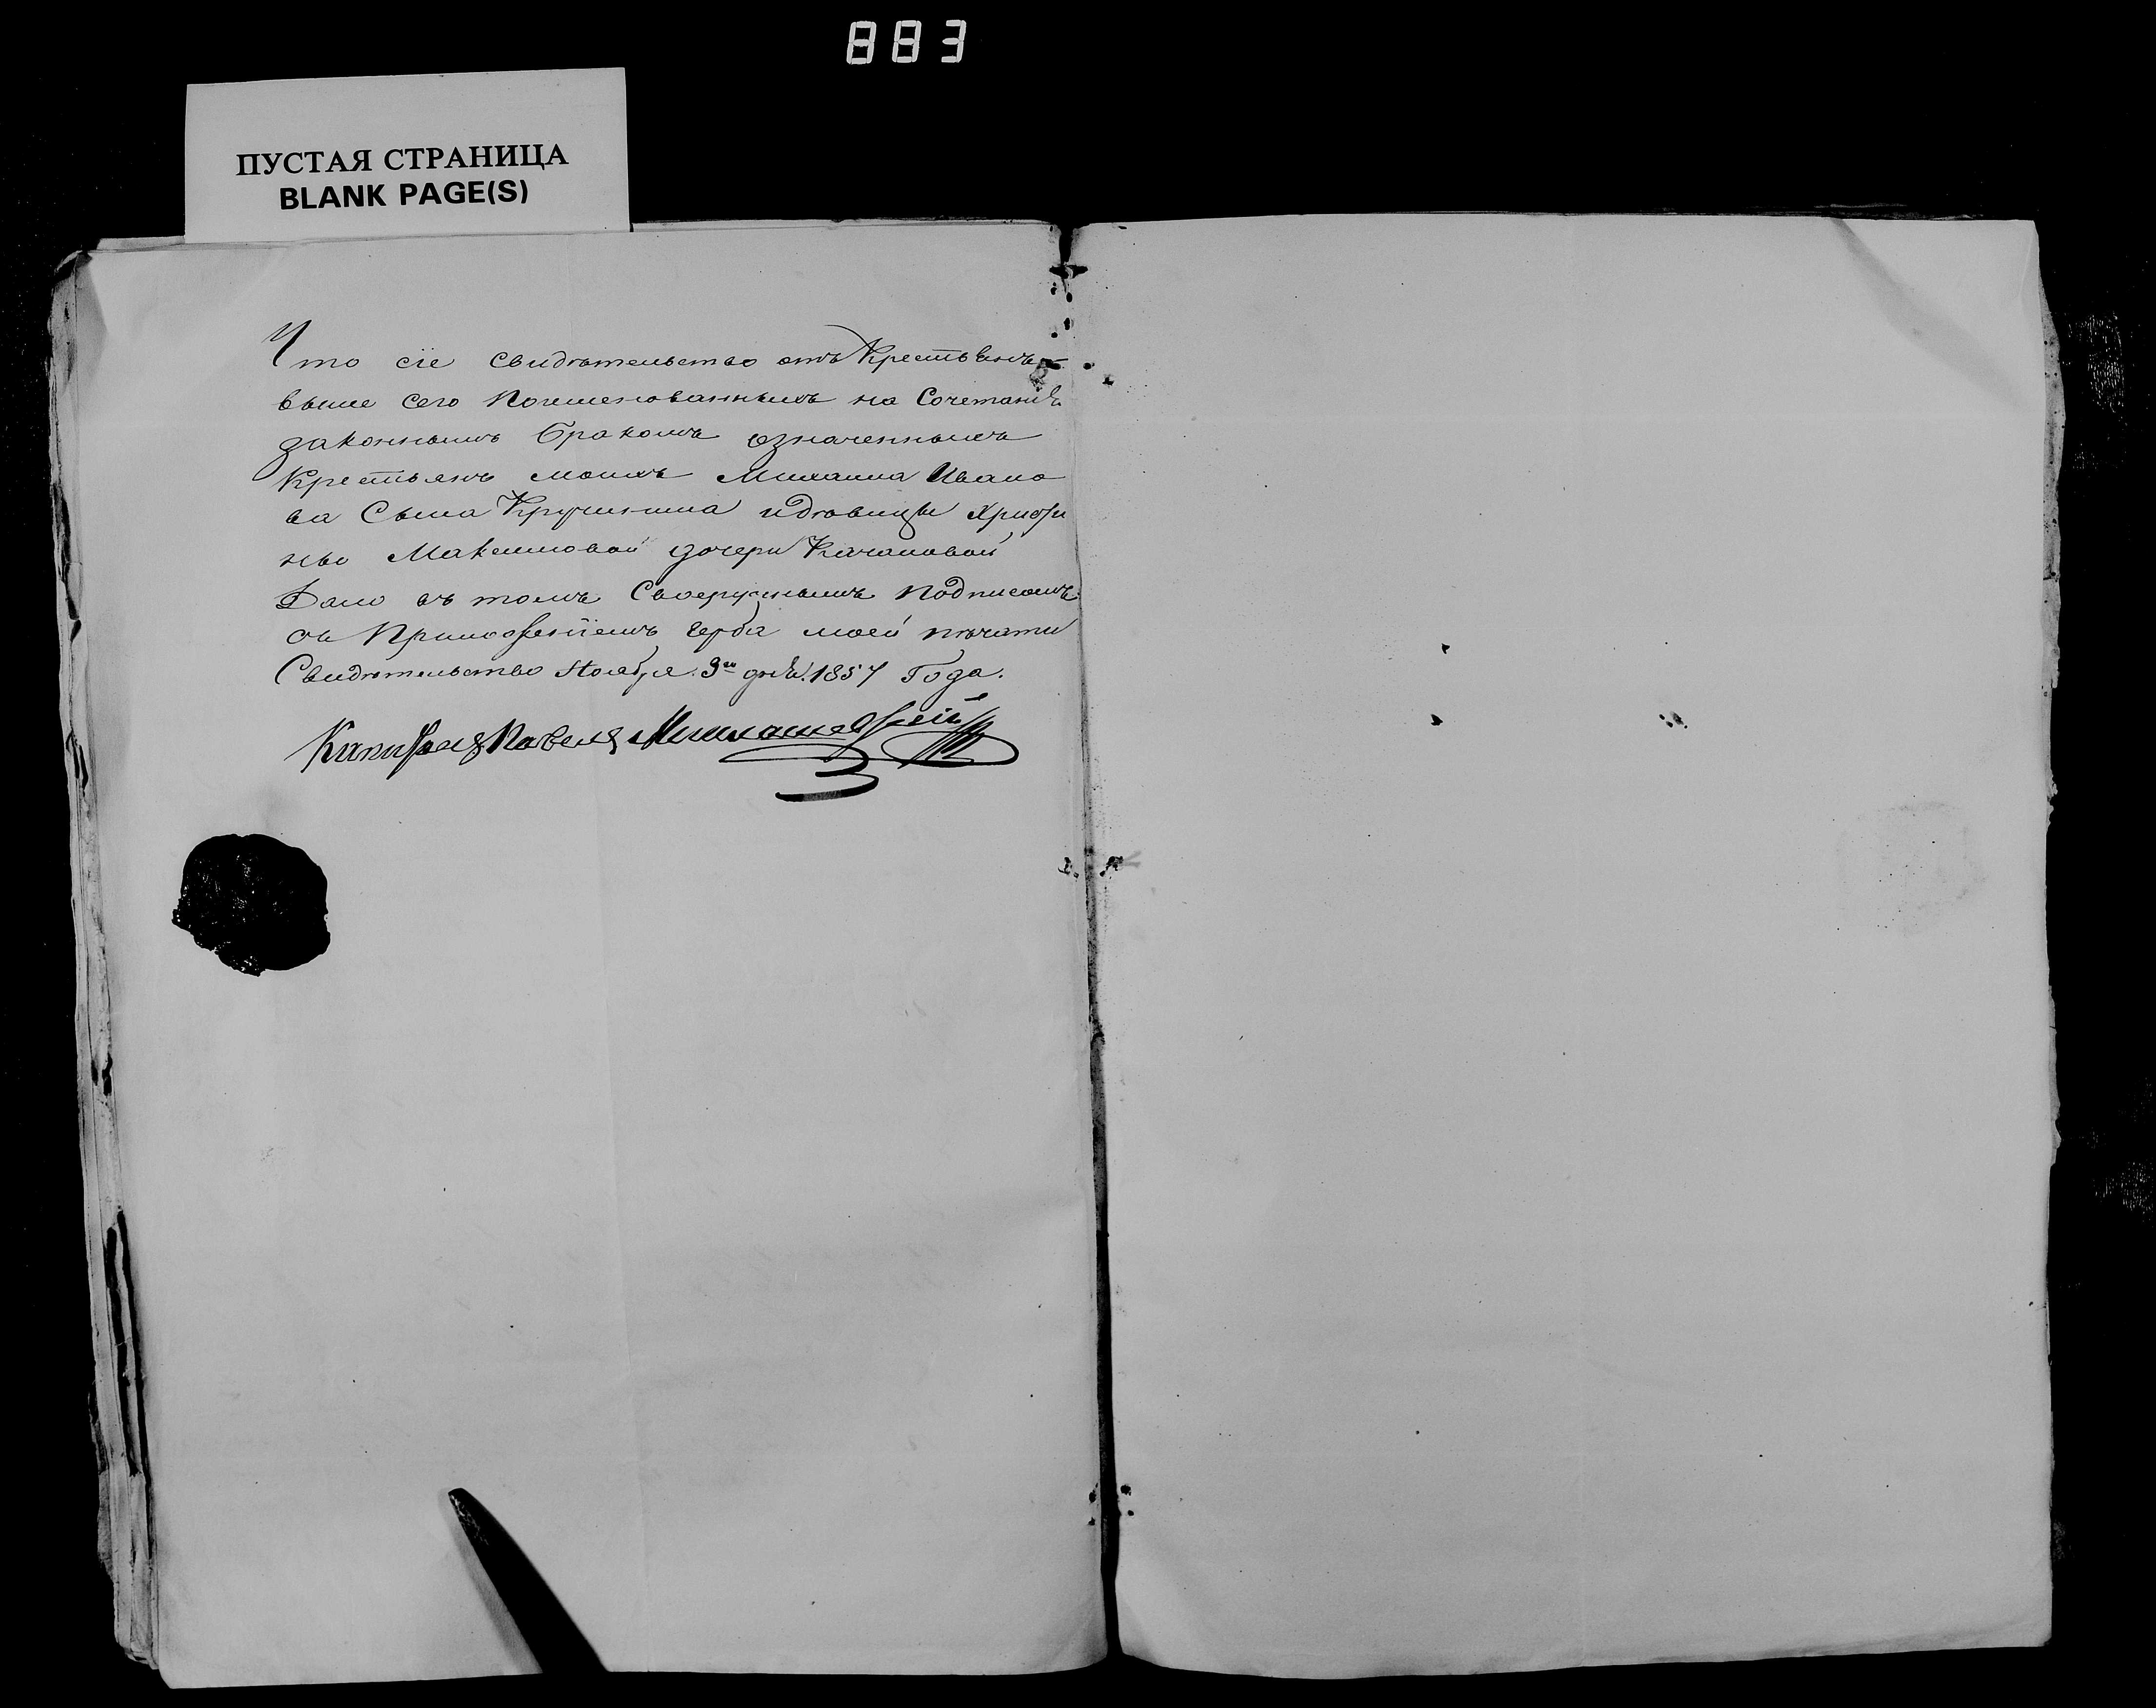 883
ПУСТАЯ СТРАНИЦА
BLANK PAGE(S)
Что сіе свидѣтельство отъ Крестьянъ
выше сего поименованнымъ на Сочетаніе
законнымъ бракомъ означенныхъ
Крестьянъ моихъ Михаила Ивано
ва Сына и дѣвицы
Максимовой дочери
Дано въ томъ подписомъ
съ Приложеніемъ герба моей печати
Свидѣтельство Ноября 3го дня 1857 Года.
Павелъ